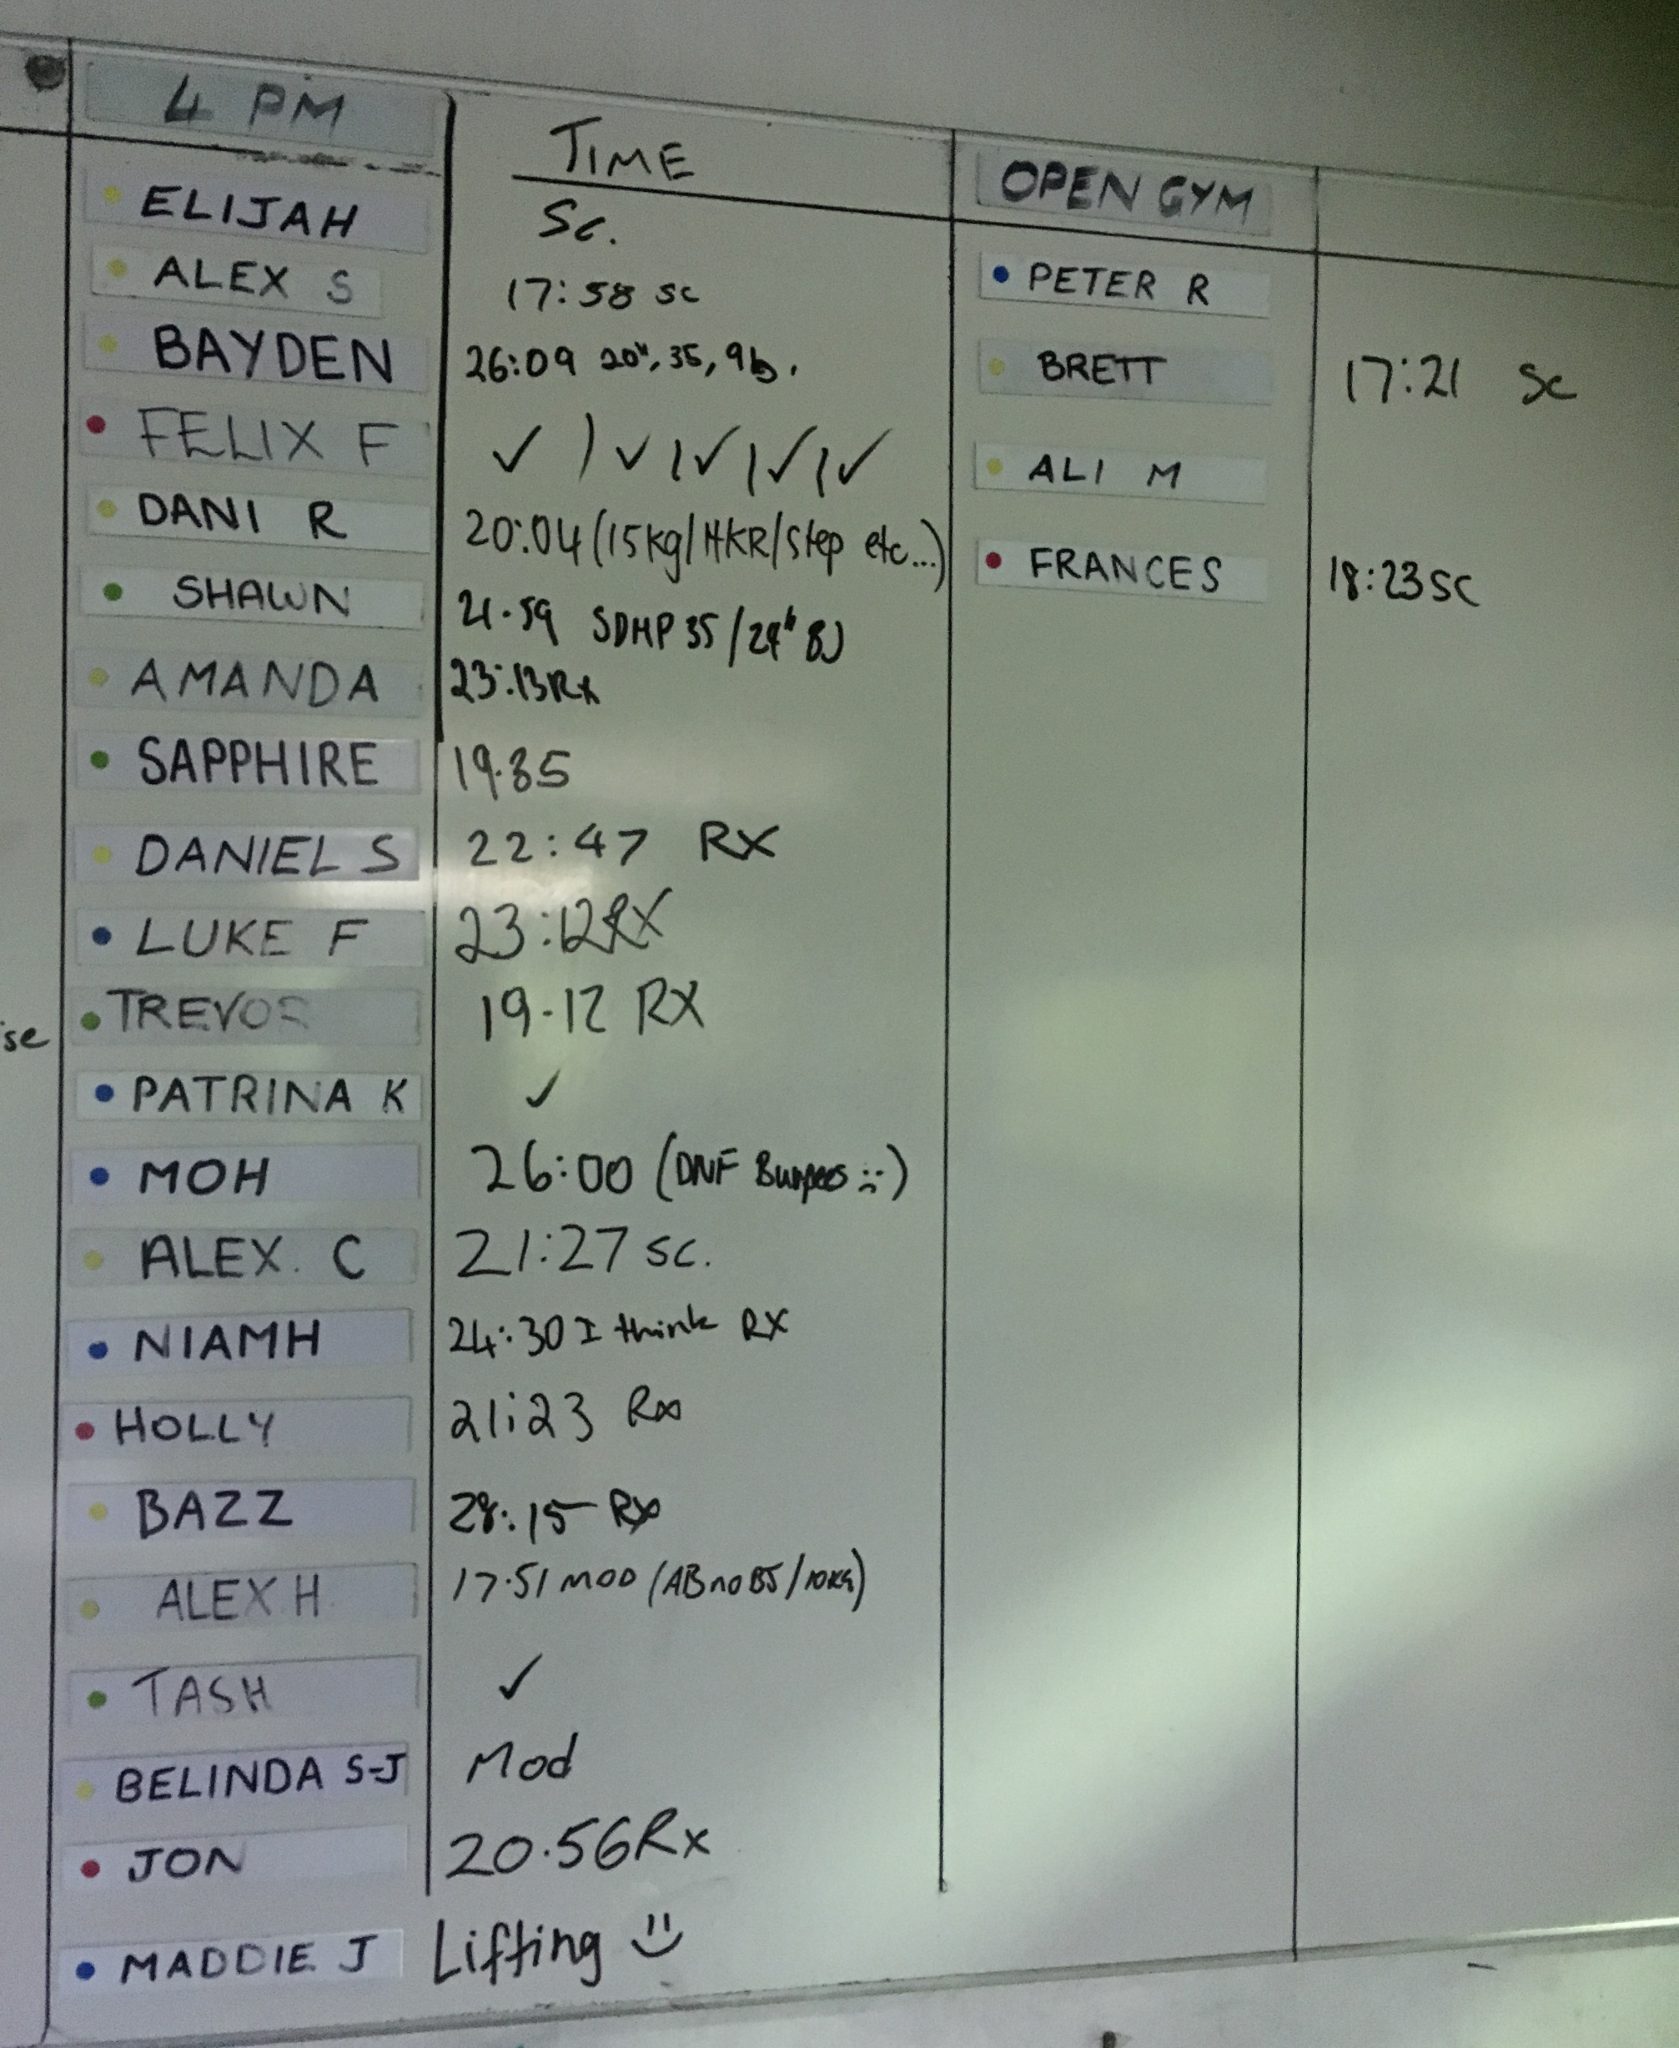 4 PM TIME OPEN GYM
ELIJAH Sc.
ALEX S 17:58 sc PETER R
BAYDEN 26:09 20", 35, 9b. BRETT 17:21 Sc
FELIX F ✓ / ✓ / ✓ / ✓ / ✓ ALI M
DANI R 20:04 (15kg/HKR/Step etc...) FRANCES 18:23 SC
SHAWN 21.59 SDHP 35/24" BJ
AMANDA 23:13 Rx
SAPPHIRE 19.35
DANIEL S 22:47 RX
LUKE F 23:12 RX
se TREVOR 19.12 RX
PATRINA K ✓
MOH 26:00 (DNF Burpees :()
ALEX. C 21:27 sc.
NIAMH 24:30 I think RX
HOLLY 21:23 Rx
BAZZ 28:15 Rx
ALEX H 17.51 MOD (AB no BJ/10KG)
TASH ✓
BELINDA S-J Mod
JON 20.56 Rx
MADDIE J Lifting :)